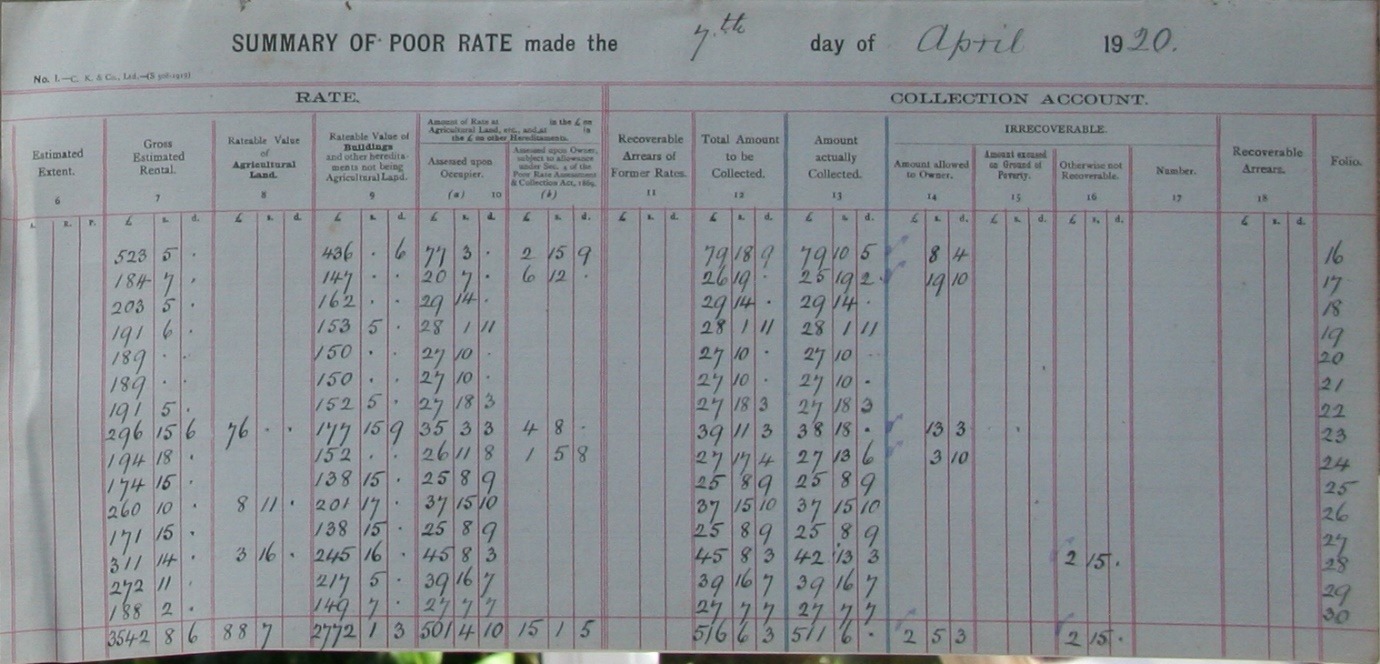 SUMMARY OF POOR RATE made the 7th day of April 1920.
No. 1.—C. K. & Co., Ltd.
RATE. COLLECTION ACCOUNT.
Estimated Extent. 6
Gross Estimated Rental. 7
Rateable Value of Agricultural Land. 8
Rateable Value of Buildings and other heredita- ments not being Agricultural Land. 9
Amount of Rate at in the £ on Agricultural Land, etc., and at in the £ on other Hereditaments.
Assessed upon Occupier. (a) 10
Assessed upon Owner, subject to allowance under Sec. 4 of the Poor Rate Assessment & Collection Act, 1869. (b)
Recoverable Arrears of Former Rates. 11
Total Amount to be Collected. 12
Amount actually Collected. 13
IRRECOVERABLE.
Amount allowed to Owner. 14
Amount excused on Ground of Poverty. 15
Otherwise not Recoverable. 16
Number. 17
Recoverable Arrears. 18
Folio.
A. R. P. £ s. d. £ s. d. £ s. d. £ s. d. £ s. d. £ s. d. £ s. d. £ s. d. £ s. d. £ s. d. £ s. d. £ s. d.
523 5 · 436 · 6 77 3 · 2 15 9 79 18 9 79 10 5 8 4 16
184 7 · 147 · · 20 7 · 6 12 · 26 19 · 25 19 2 19 10 17
203 5 · 162 · · 29 14 · 29 14 · 29 14 · 18
191 6 · 153 5 · 28 1 11 28 1 11 28 1 11 19
189 · · 150 · · 27 10 · 27 10 · 27 10 · 20
189 · · 150 · · 27 10 · 27 10 · 27 10 · 21
191 5 · 152 5 · 27 18 3 27 18 3 27 18 3 22
296 15 6 76 · · 177 15 9 35 3 3 4 8 · 39 11 3 38 18 · 13 3 23
194 18 · 152 · · 26 11 8 1 5 8 27 17 4 27 13 6 3 10 24
174 15 · 138 15 · 25 8 9 25 8 9 25 8 9 25
260 10 · 8 11 · 201 17 · 37 15 10 37 15 10 37 15 10 26
171 15 · 138 15 · 25 8 9 25 8 9 25 8 9 27
311 14 · 3 16 · 245 16 · 45 8 3 45 8 3 42 13 3 2 15 · 28
272 11 · 217 5 · 39 16 7 39 16 7 39 16 7 29
188 2 · 149 7 · 27 7 7 27 7 7 27 7 7 30
3542 8 6 88 7 2772 1 3 501 4 10 15 1 5 516 6 3 511 6 · 2 5 3 2 15 ·